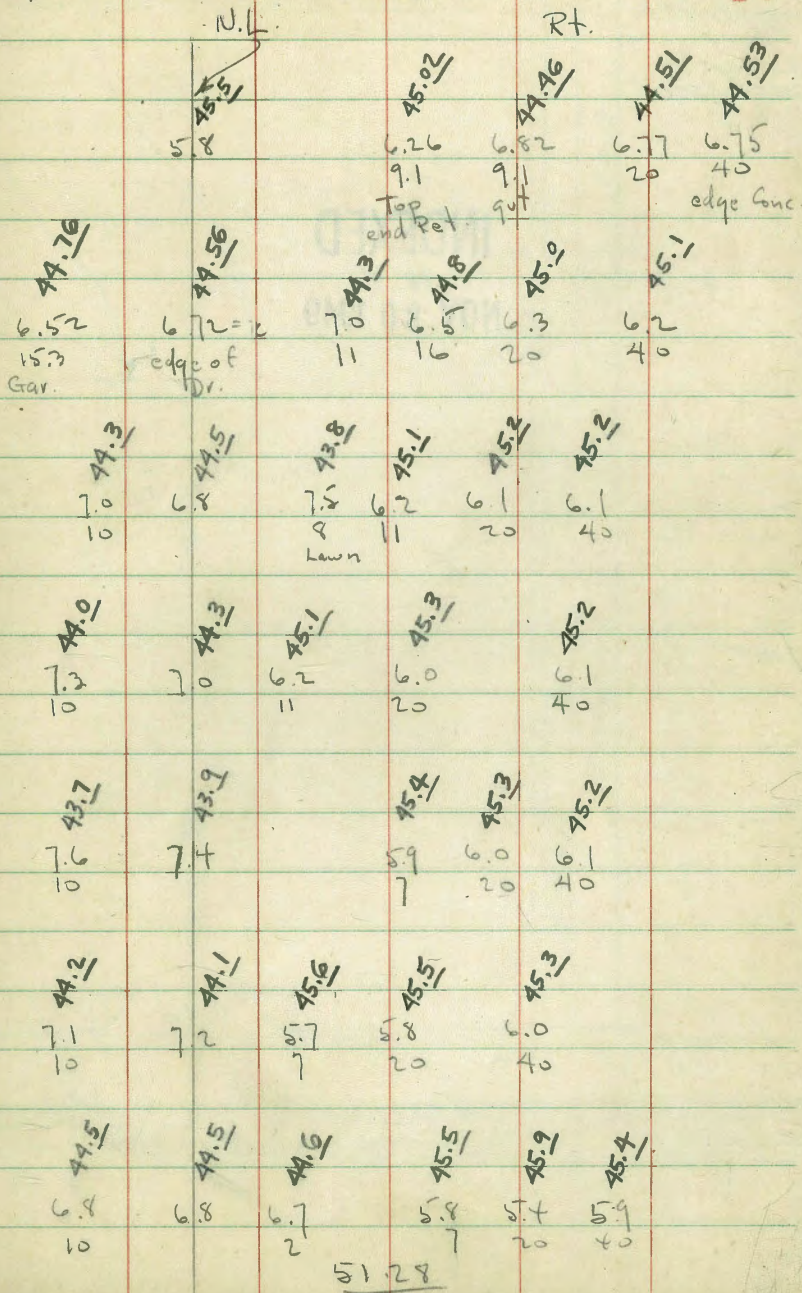 N.L. Rt.
45.5 45.02 44.46 44.51 44.53
5.8 6.26 6.82 6.77 6.75
9.1 9.1 20 40
Top gut edge Conc.
end Ret.
44.76 44.56 44.3 44.8 45.0 45.1
6.52 6.72 = 7.0 6.5 6.3 6.2
15.3 edge of 11 16 20 40
Gar. Dr.
44.3 44.5 43.8 45.1 45.2 45.2
7.0 6.8 7.5 6.2 6.1 6.1
10 8 11 20 40
Lawn
44.0 44.3 45.1 45.3 45.2
7.3 7.0 6.2 6.0 6.1
10 11 20 40
43.7 43.9 45.4 45.3 45.2
7.6 7.4 5.9 6.0 6.1
10 7 20 40
44.2 44.1 45.6 45.5 45.3
7.1 7.2 5.7 5.8 6.0
10 7 20 40
44.5 44.5 44.6 45.5 45.9 45.4
6.8 6.8 6.7 5.8 5.4 5.9
10 2 7 20 40
51.28